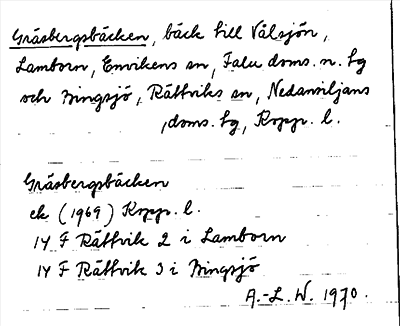 Gräsbergsbäcken, bäck till Välsjön,
Lamborn, Envikens sn, Falu doms. n. tg
och Bingsjö, Rättviks sn, Nedansiljans
,doms. tg, Kopp. l.
Gräsbergsbäcken
ek (1969) Kopp. l.
14 F Rättvik 2 i Lamborn
14 F Rättvik 3 i Bingsjö
A.-L. W. 1970.